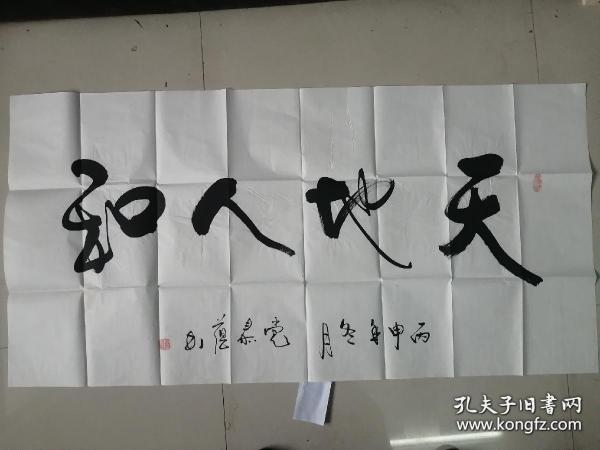 天地人和
丙申年冬月 党景蕴书
孔夫子旧書网
www.kongfz.com